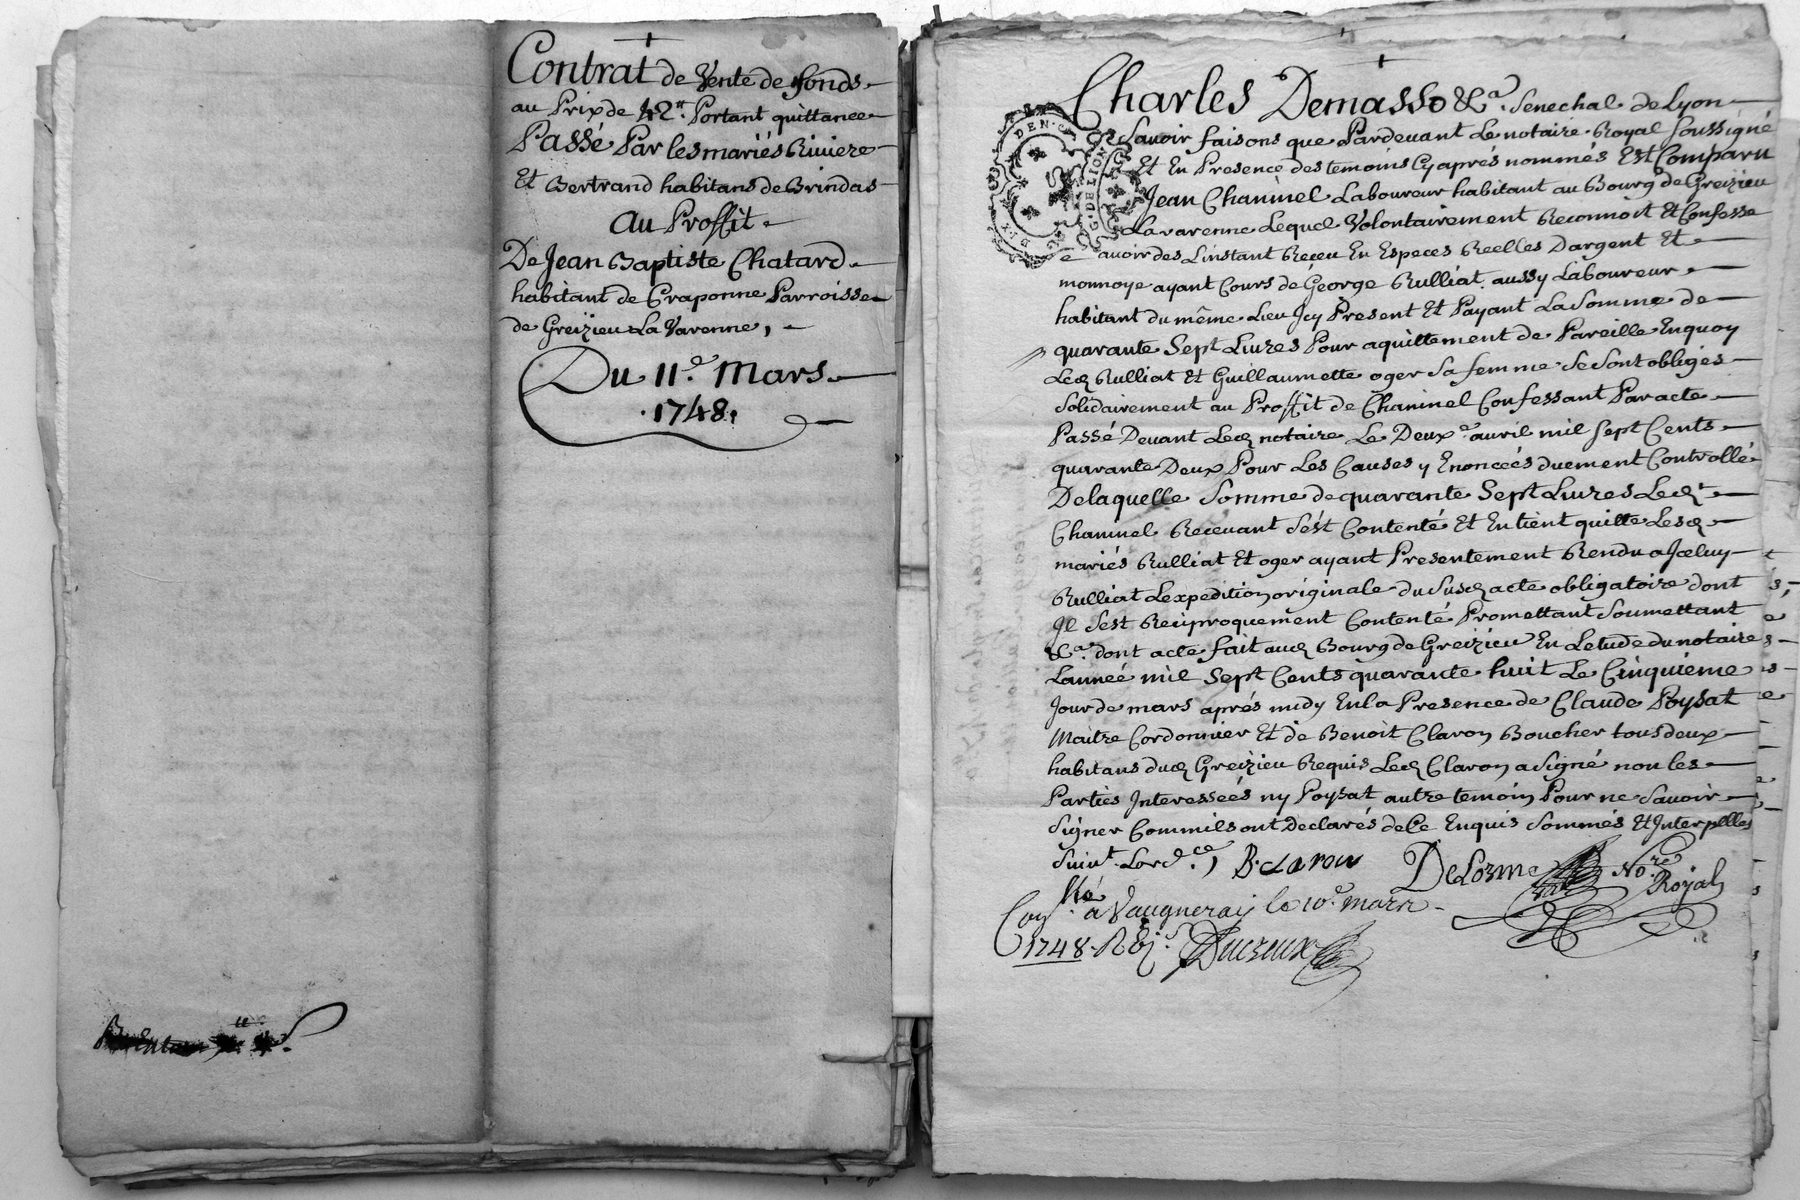 Contrat de Vente de fonds
au Prix de 42tt. Portant quittance
Passé Par les mariés Riviere
Et Bertrand habitans de Brindas
Au Proffit
De Jean Baptiste Chatard
habitant de Craponne Parroisse
de Greizieu La Varenne,
Du 11e. Mars
1748.
Charles Demasso &a. Senechal de Lyon
Savoir faisons que Pardevant Le notaire Royal soussigné
Et En Presence des temoins Cy aprés nommés Est Comparu
Jean Chaninel Laboureur habitant au Bourg de Greizieu
Lavarenne Lequel Volontairement Reconnoit Et Confesse
avoir des Linstant Receu En Especes Reelles Dargent Et
monnoye ayant Cours de George Rulliat aussy Laboureur
habitant du même Lieu Jcy Present Et Payant La Somme de
quarante Sept Livres Pour aquittement de Pareille Enquoy
Led Rulliat Et Guillaumette oger Sa femme Se Sont obligés
Solidairement au Proffit de Chaninel Confessant Par acte
Passé Devant Led notaire Le Deuxe avril mil Sept Cents
quarante Deux Pour Les Causes y Enonceés duement Controllé
De laquelle Somme de quarante Sept Livres Ledt
Chaninel Recevant Sést Contenté Et En tient quitte Lesd
mariés Rulliat Et oger ayant Presentement Rendu a Jceluy
Rulliat Lexpedition originale du Susd acte obligatoire dont
Jl Sest Reciproquement Contenté Promettant Soumettant
&a. dont acte fait aud Bourg de Greizieu En Letude du notaire
Lanneé mil Sept Cents quarante huit Le Cinquieme
Jour de mars aprés midy En la Presence de Claude Poysat
Maitre Cordonnier Et de Benoit Claron Boucher tous deux
habitans dud Greizieu Requis Led Claron a Signé non les
Parties Interesseés ny Poysat autre temoin Pour ne Savoir
Signer Commils ont Declarés de Ce Enquis Sommés Et Interpellés
Suivt. Lordce, B. claron Delorme Nore
Royal
Conllé à Vaugneray le 10e. mars
1748. Ducreux